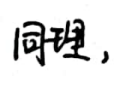 同理，